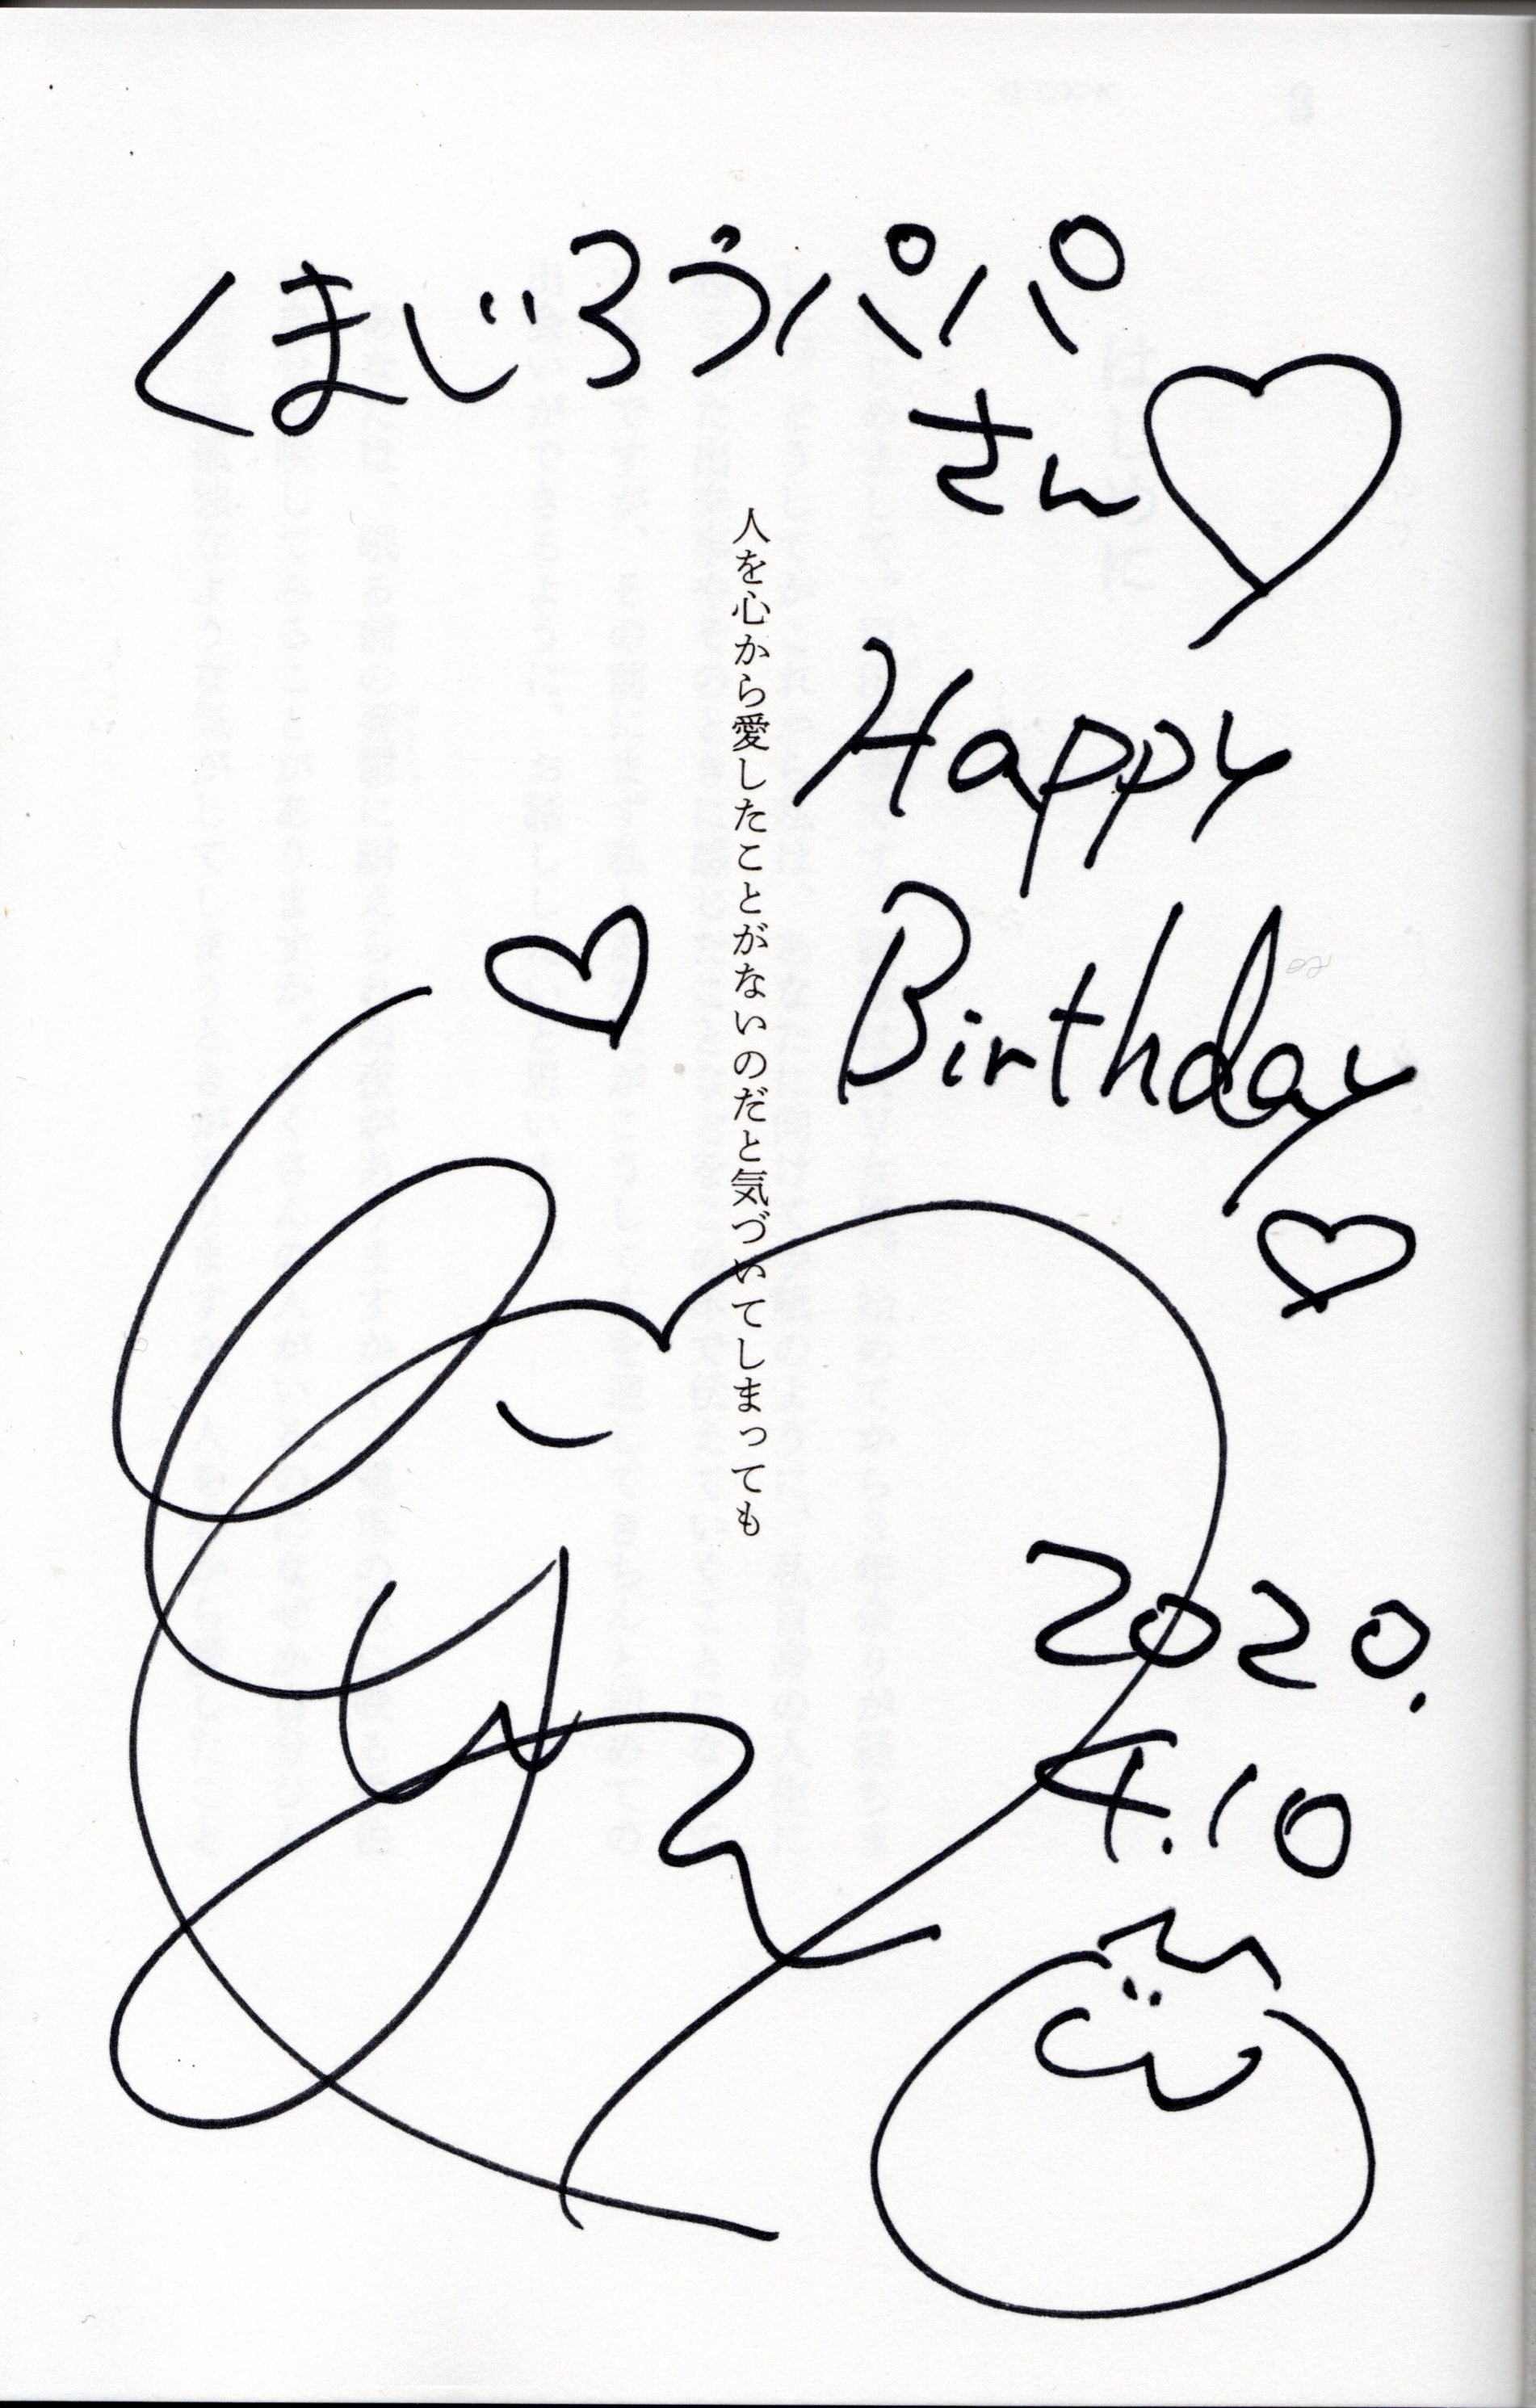 くまじろうパパ
さん
人を心から愛したことがないのだと気づいてしまっても
Happy
Birthday
2020.
4.10